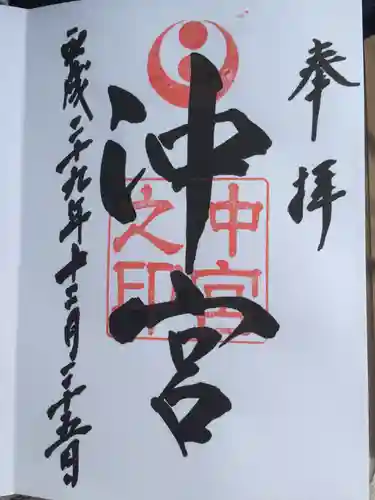 奉拝
沖宮
沖宮
之印
平成二十九年十二月二十五日